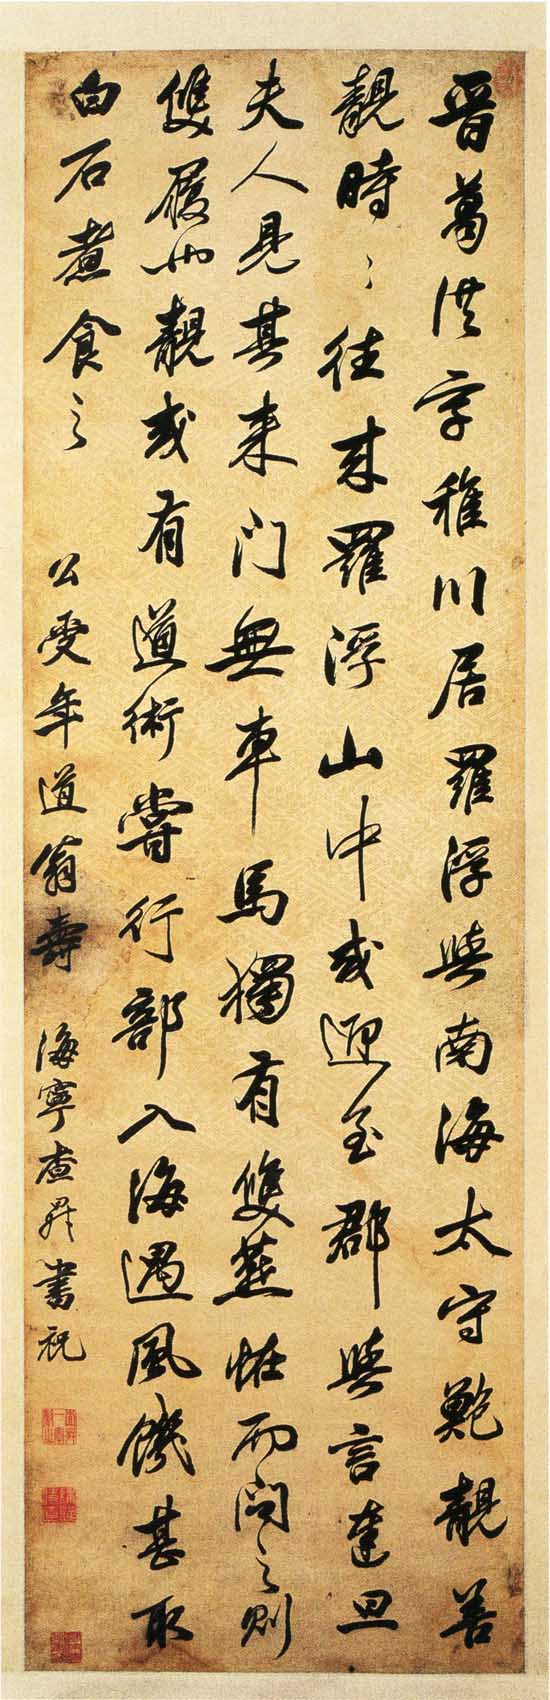 晉葛洪字稚川居羅浮與南海太守鮑靚善
靚時〻往來羅浮山中或迎至郡與言達旦
夫人見其來門無車馬獨有雙燕怪而問之則
雙履也靚或有道術嘗行部入海遇風饑甚取
白石煮食之
公雯年道翁壽
海寧查昇書祝